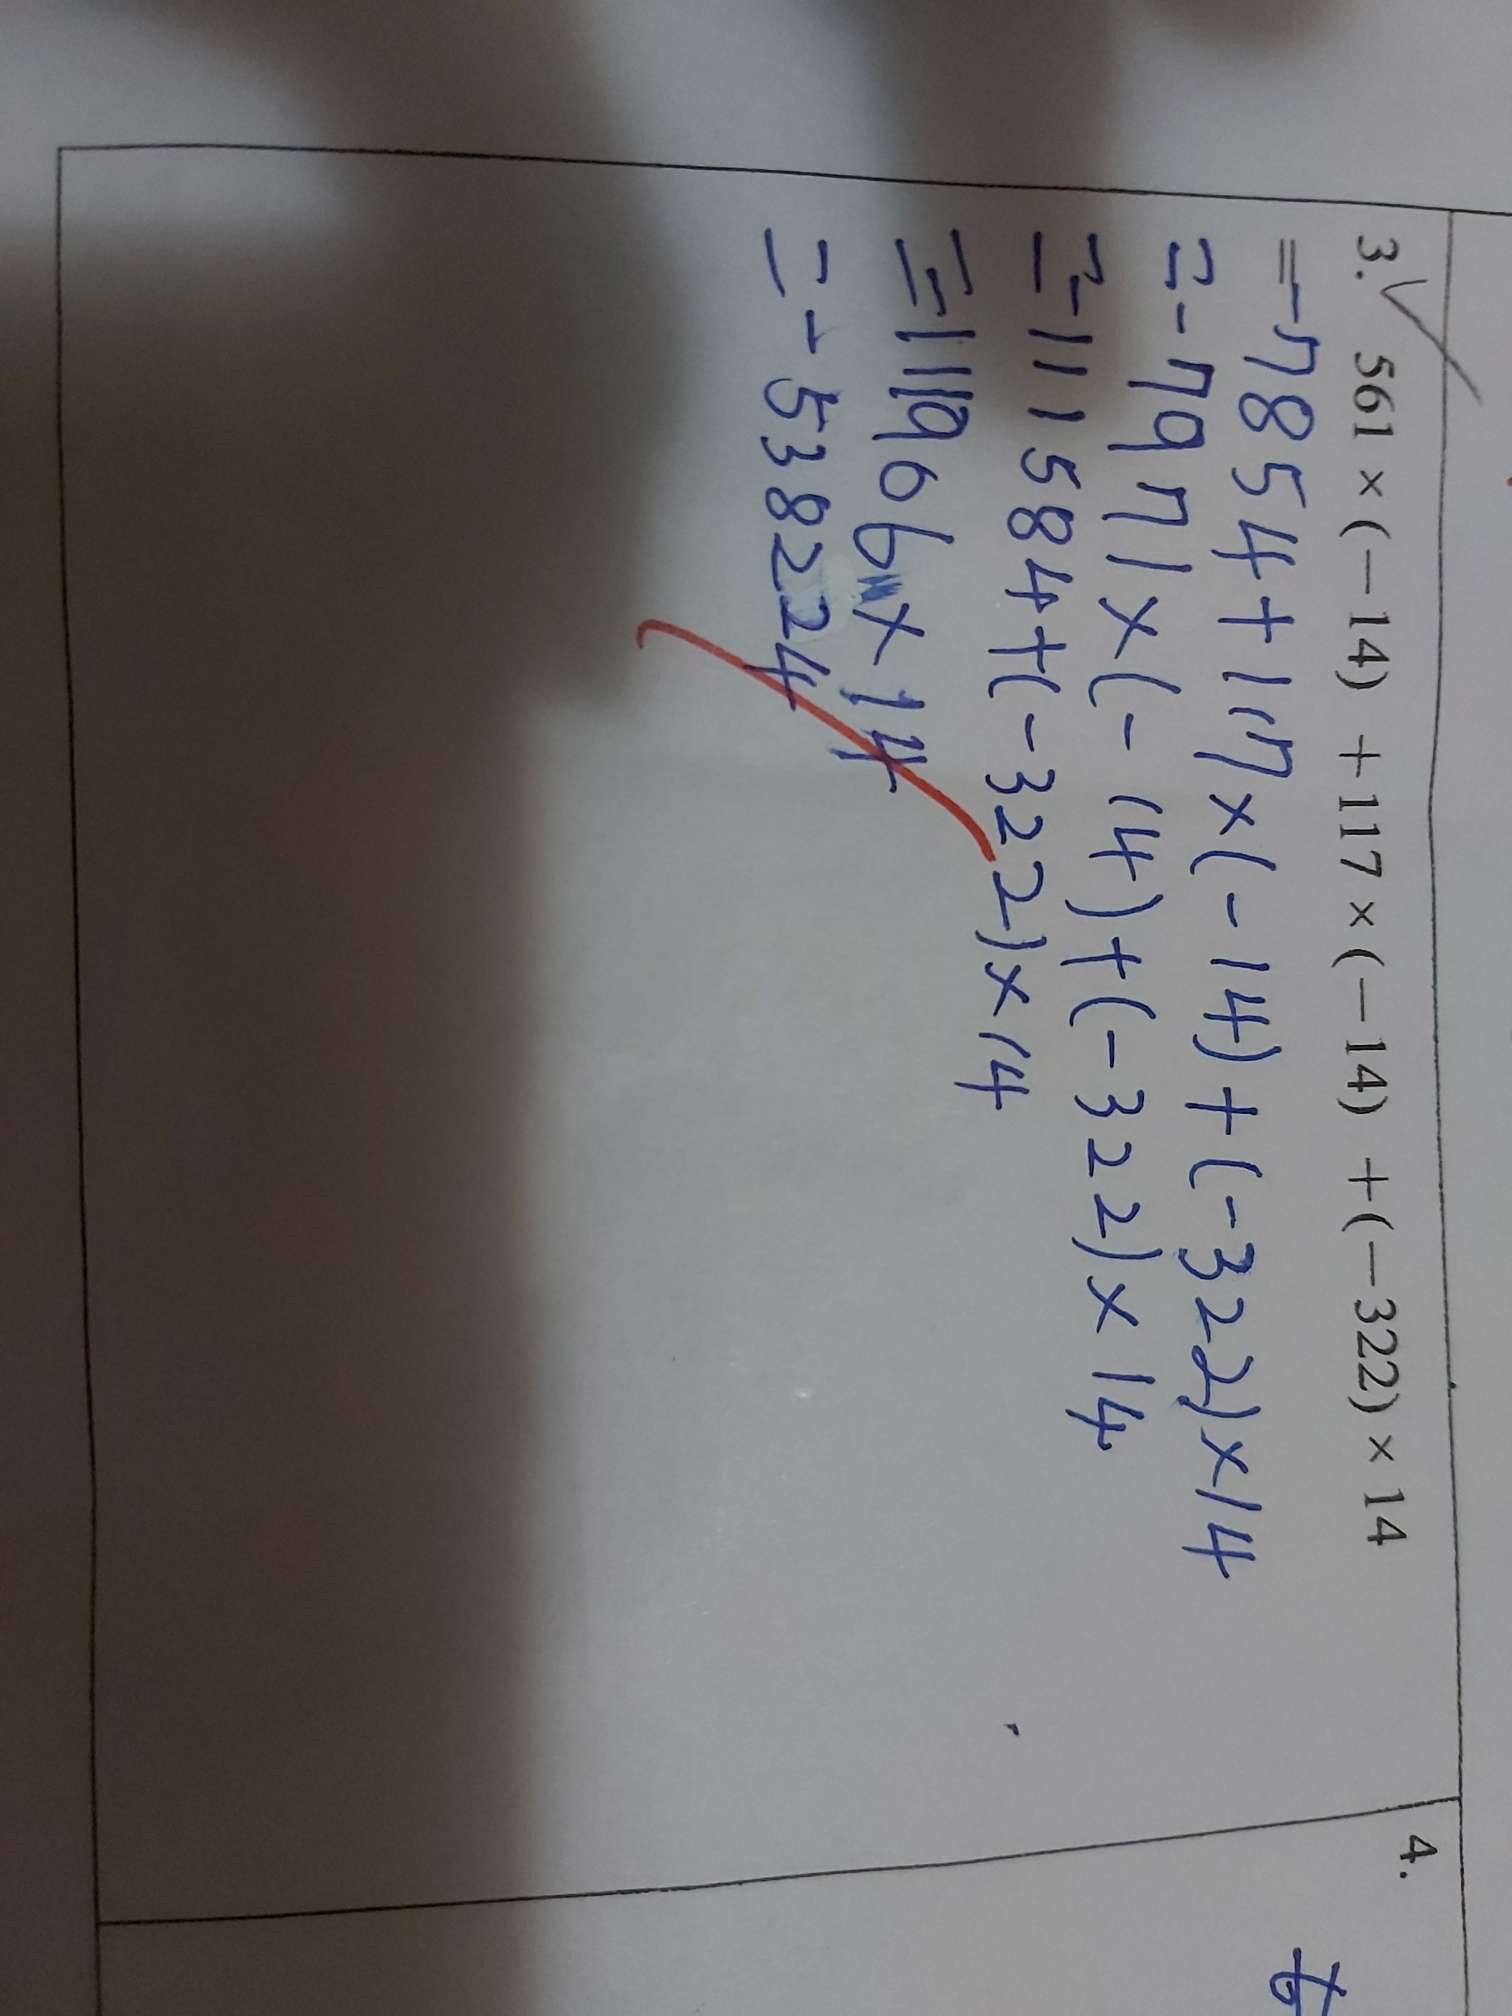 3. 561 × (−14) + 117 × (−14) + (−322) × 14
= −7854 + 117 × (−14) + (−322) × 14
= −7971 × (−14) + (−322) × 14
= −111584 + (−322) × 14
= −111906 × 14
= −53824
4.